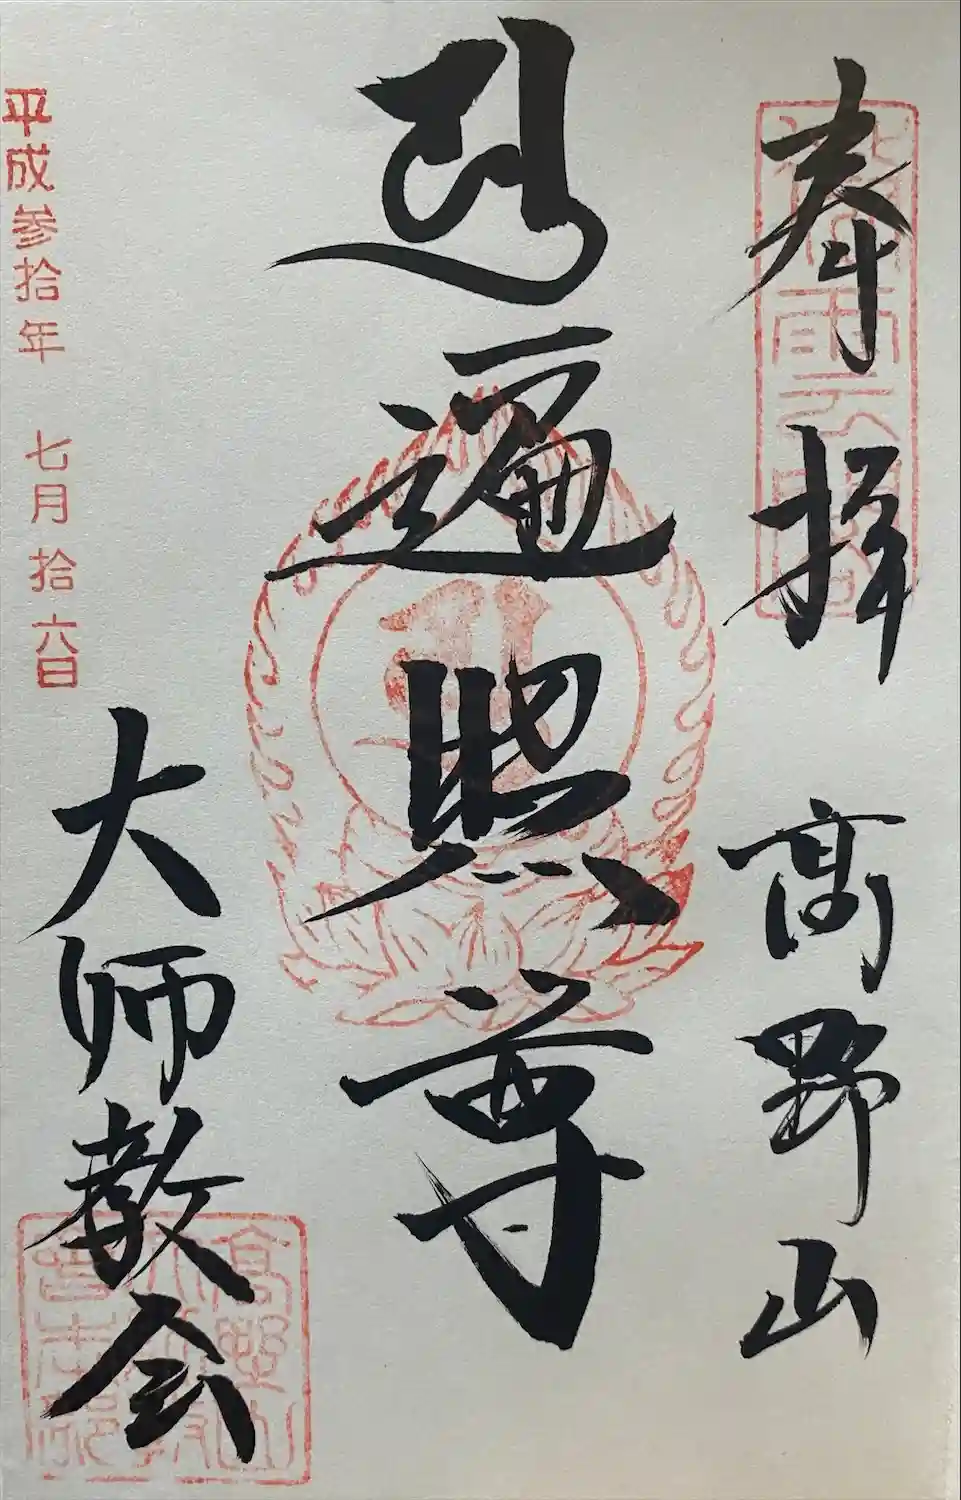 奉拝 高野山
遍照尊
大師教会
平成参拾年 七月拾六日